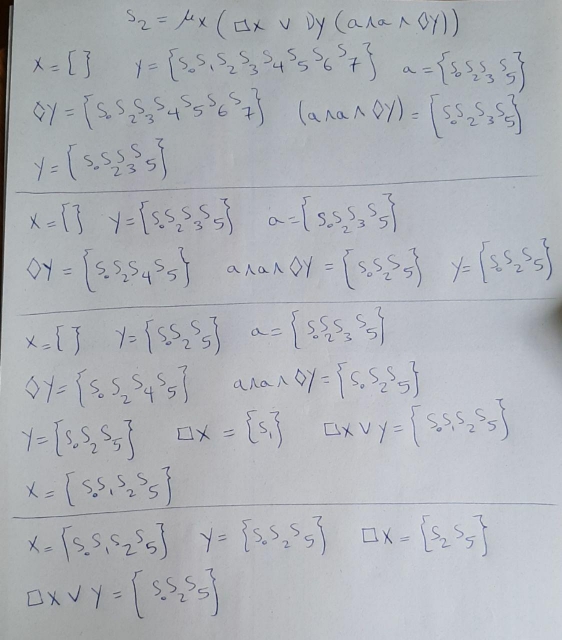 S₂ = μx (□x ∨ νy (a∧a∧ ◇y))
x = {} y = {S₀S₁S₂S₃S₄S₅S₆S₇} a = {S₀S₂S₃S₅}
◇y = {S₀S₂S₃S₄S₅S₆S₇} (a∧a∧◇y) = {S₀S₂S₃S₅}
y = {S₀S₂S₃S₅}
x = {} y = {S₀S₂S₃S₅} a = {S₀S₂S₃S₅}
◇y = {S₀S₂S₄S₅} a∧a∧◇y = {S₀S₂S₅} y = {S₀S₂S₅}
x = {} y = {S₀S₂S₅} a = {S₀S₂S₃S₅}
◇y = {S₀S₂S₄S₅} a∧a∧◇y = {S₀S₂S₅}
y = {S₀S₂S₅} □x = {S₁} □x∨y = {S₀S₁S₂S₅}
x = {S₀S₁S₂S₅}
x = {S₀S₁S₂S₅} y = {S₀S₂S₅} □x = {S₂S₅}
□x∨y = {S₀S₂S₅}